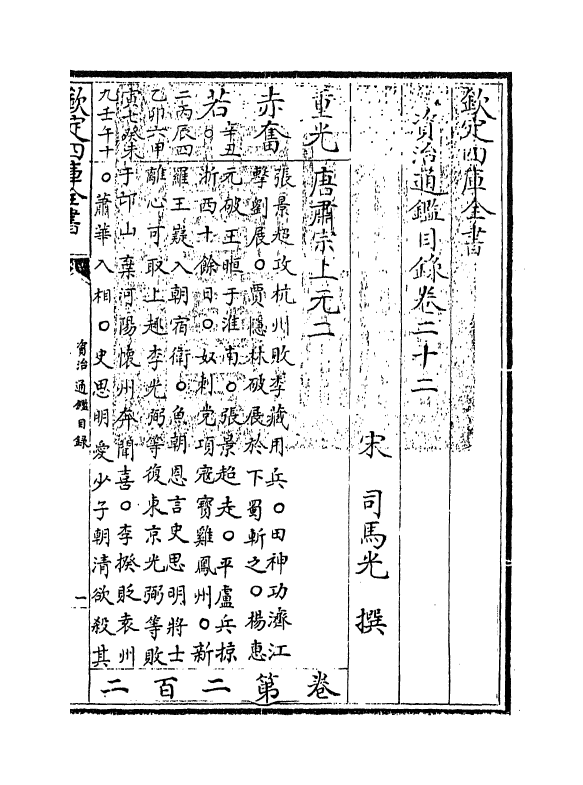 欽定四庫全書
資治通鑑目錄卷二十二
宋 司馬光 撰
重光 唐肅宗上元二
赤奮 張景超攻杭州敗李藏用兵○田神功濟江
擊劉展○賈隱林破展於下蜀斬之○楊惠
若 辛丑 元破王暅于淮南○張景超走○平盧兵掠
○ 浙西十餘日○奴刺党項寇寶雞鳳州○新
二丙辰四 羅王嶷入朝宿衛○魚朝恩言史思明將士
乙卯六甲 離心可取上趣李光弼等復東京光弼等敗
寅七癸未 于邙山棄河陽懷州奔聞喜○李揆貶袁州
九壬午十 ○蕭華入相○史思明愛少子朝清欲殺其
卷第二百二
欽定四庫全書
資治通鑑目錄
一